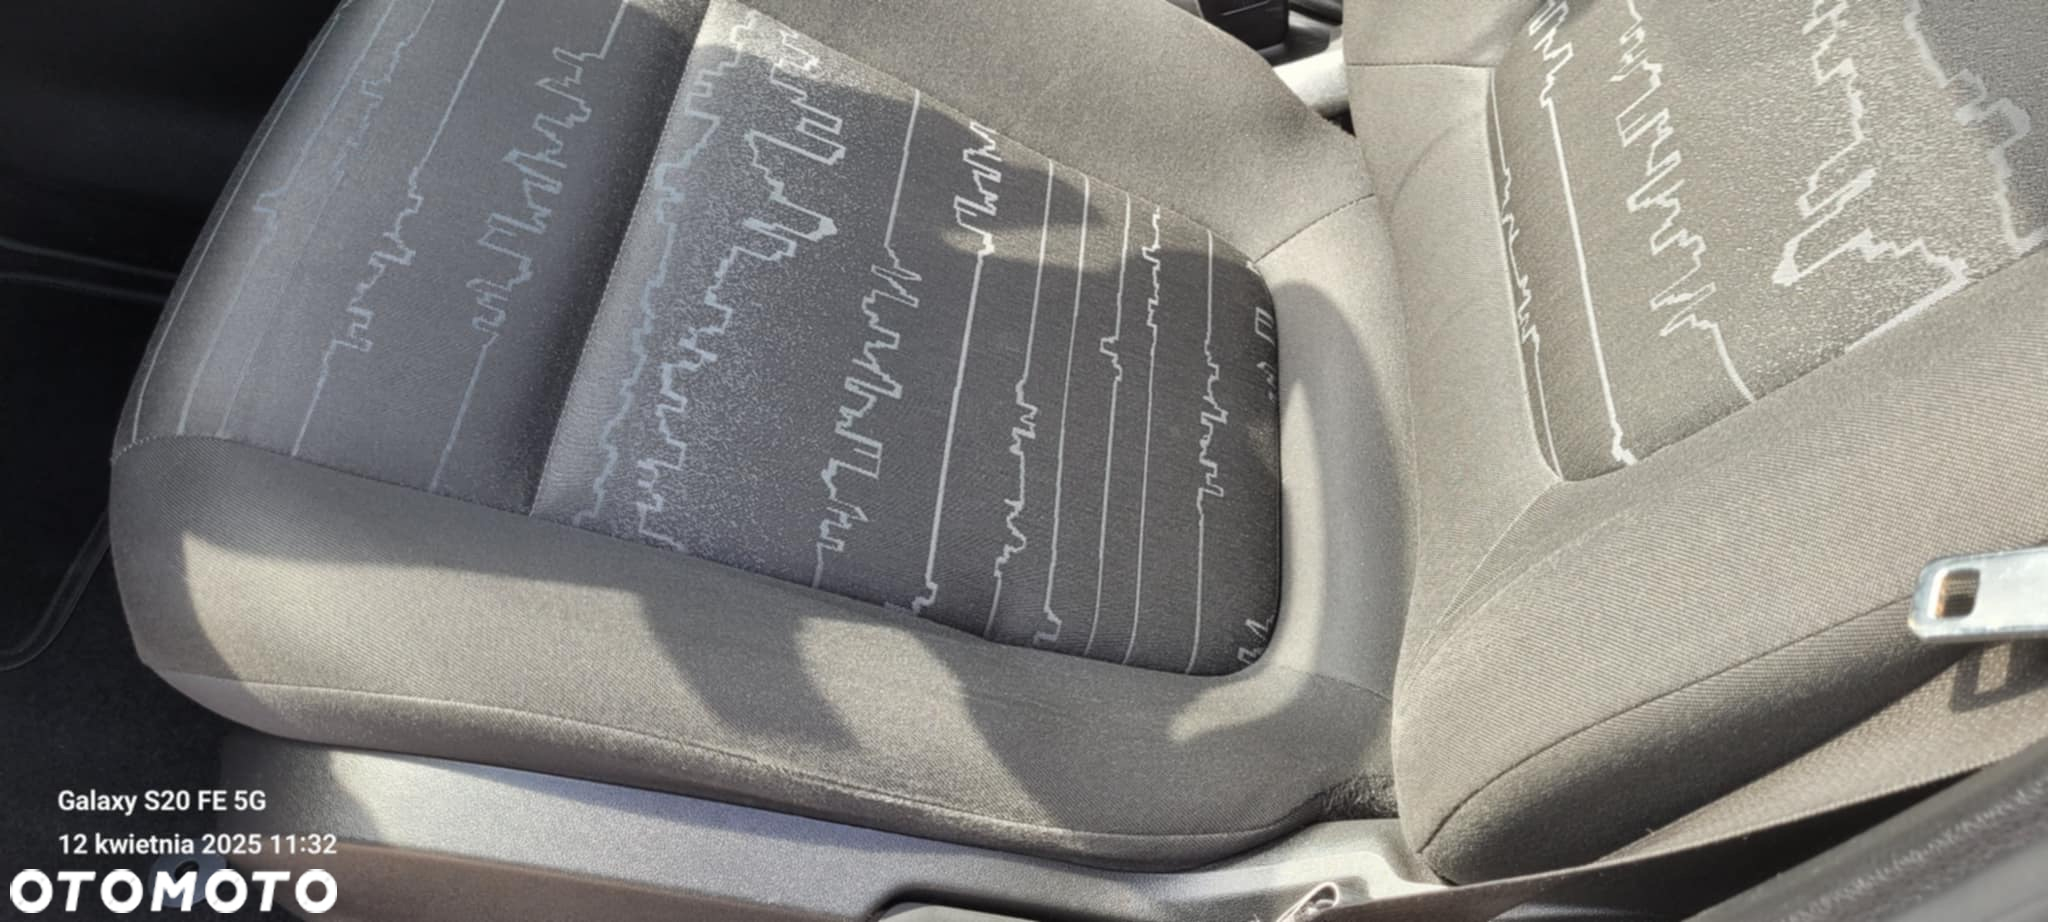 Galaxy S20 FE 5G
12 kwietnia 2025 11:32
OTOMOTO